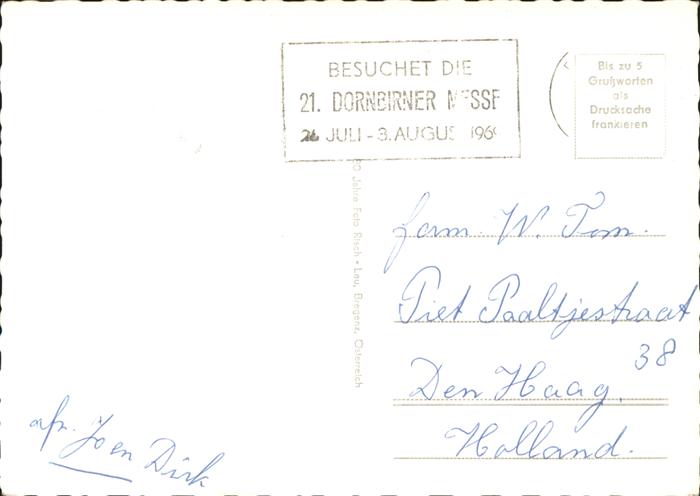 BESUCHET DIE
21. DORNBIRNER MESSE
26. JULI - 3. AUGUST 196
Bis zu 5
Grußworten
als
Drucksache
frankieren
Jahre Foto Risch • Lau, Bregenz, Österreich
fam. W. Tom.
Piet Paaltjestraat
38
Den Haag.
Holland.
afz. Jo en Dirk